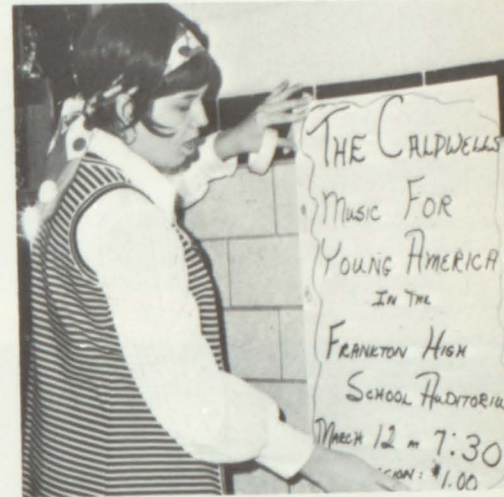 THE CALDWELLS
MUSIC FOR
YOUNG AMERICA
IN THE
FRANKTON HIGH
SCHOOL AUDITORIU
MARCH 12 7:30
$1.00